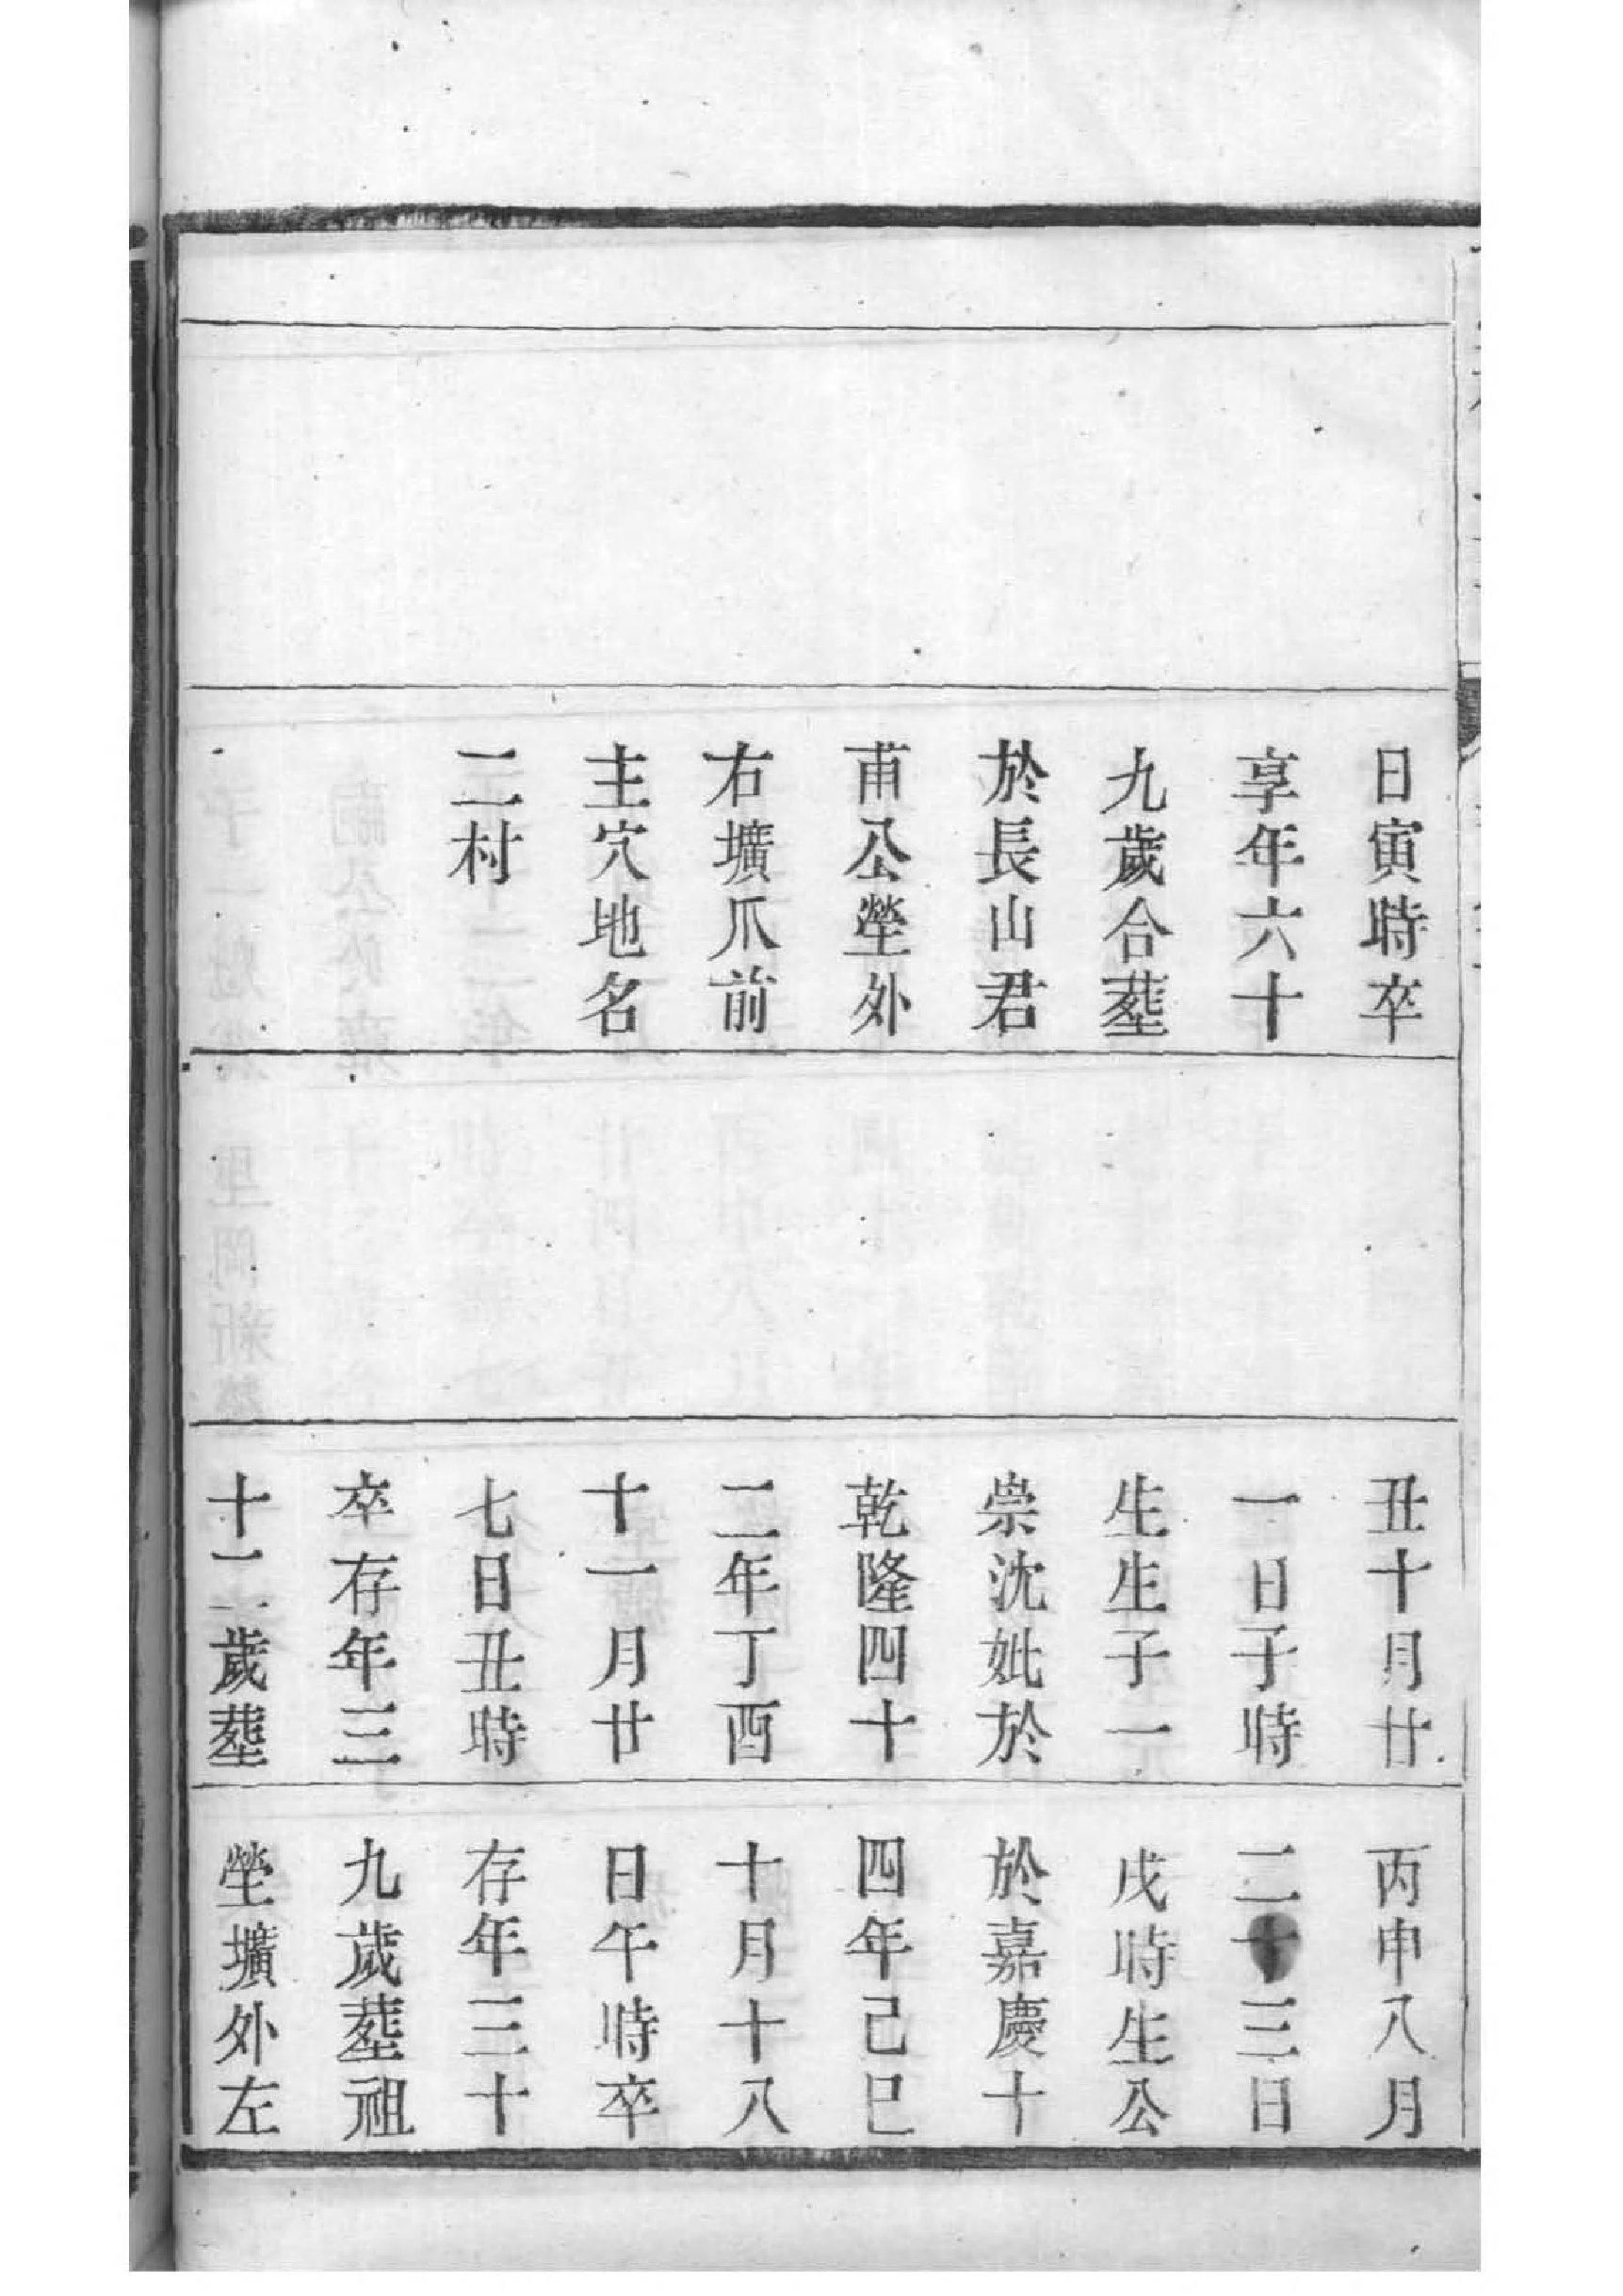 日寅時卒
享年六十
九歲合塟
於長山君
甫公塋外
右壙爪前
主穴地名
二村
丑十月廿
一日子時
生生子一
崇沈妣於
乾隆四十
二年丁酉
十一月廿
七日丑時
卒存年三
十二歲塟
丙申八月
二十三日
戌時生公
於嘉慶十
四年己巳
十月十八
日午時卒
存年三十
九歲塟祖
塋壙外左